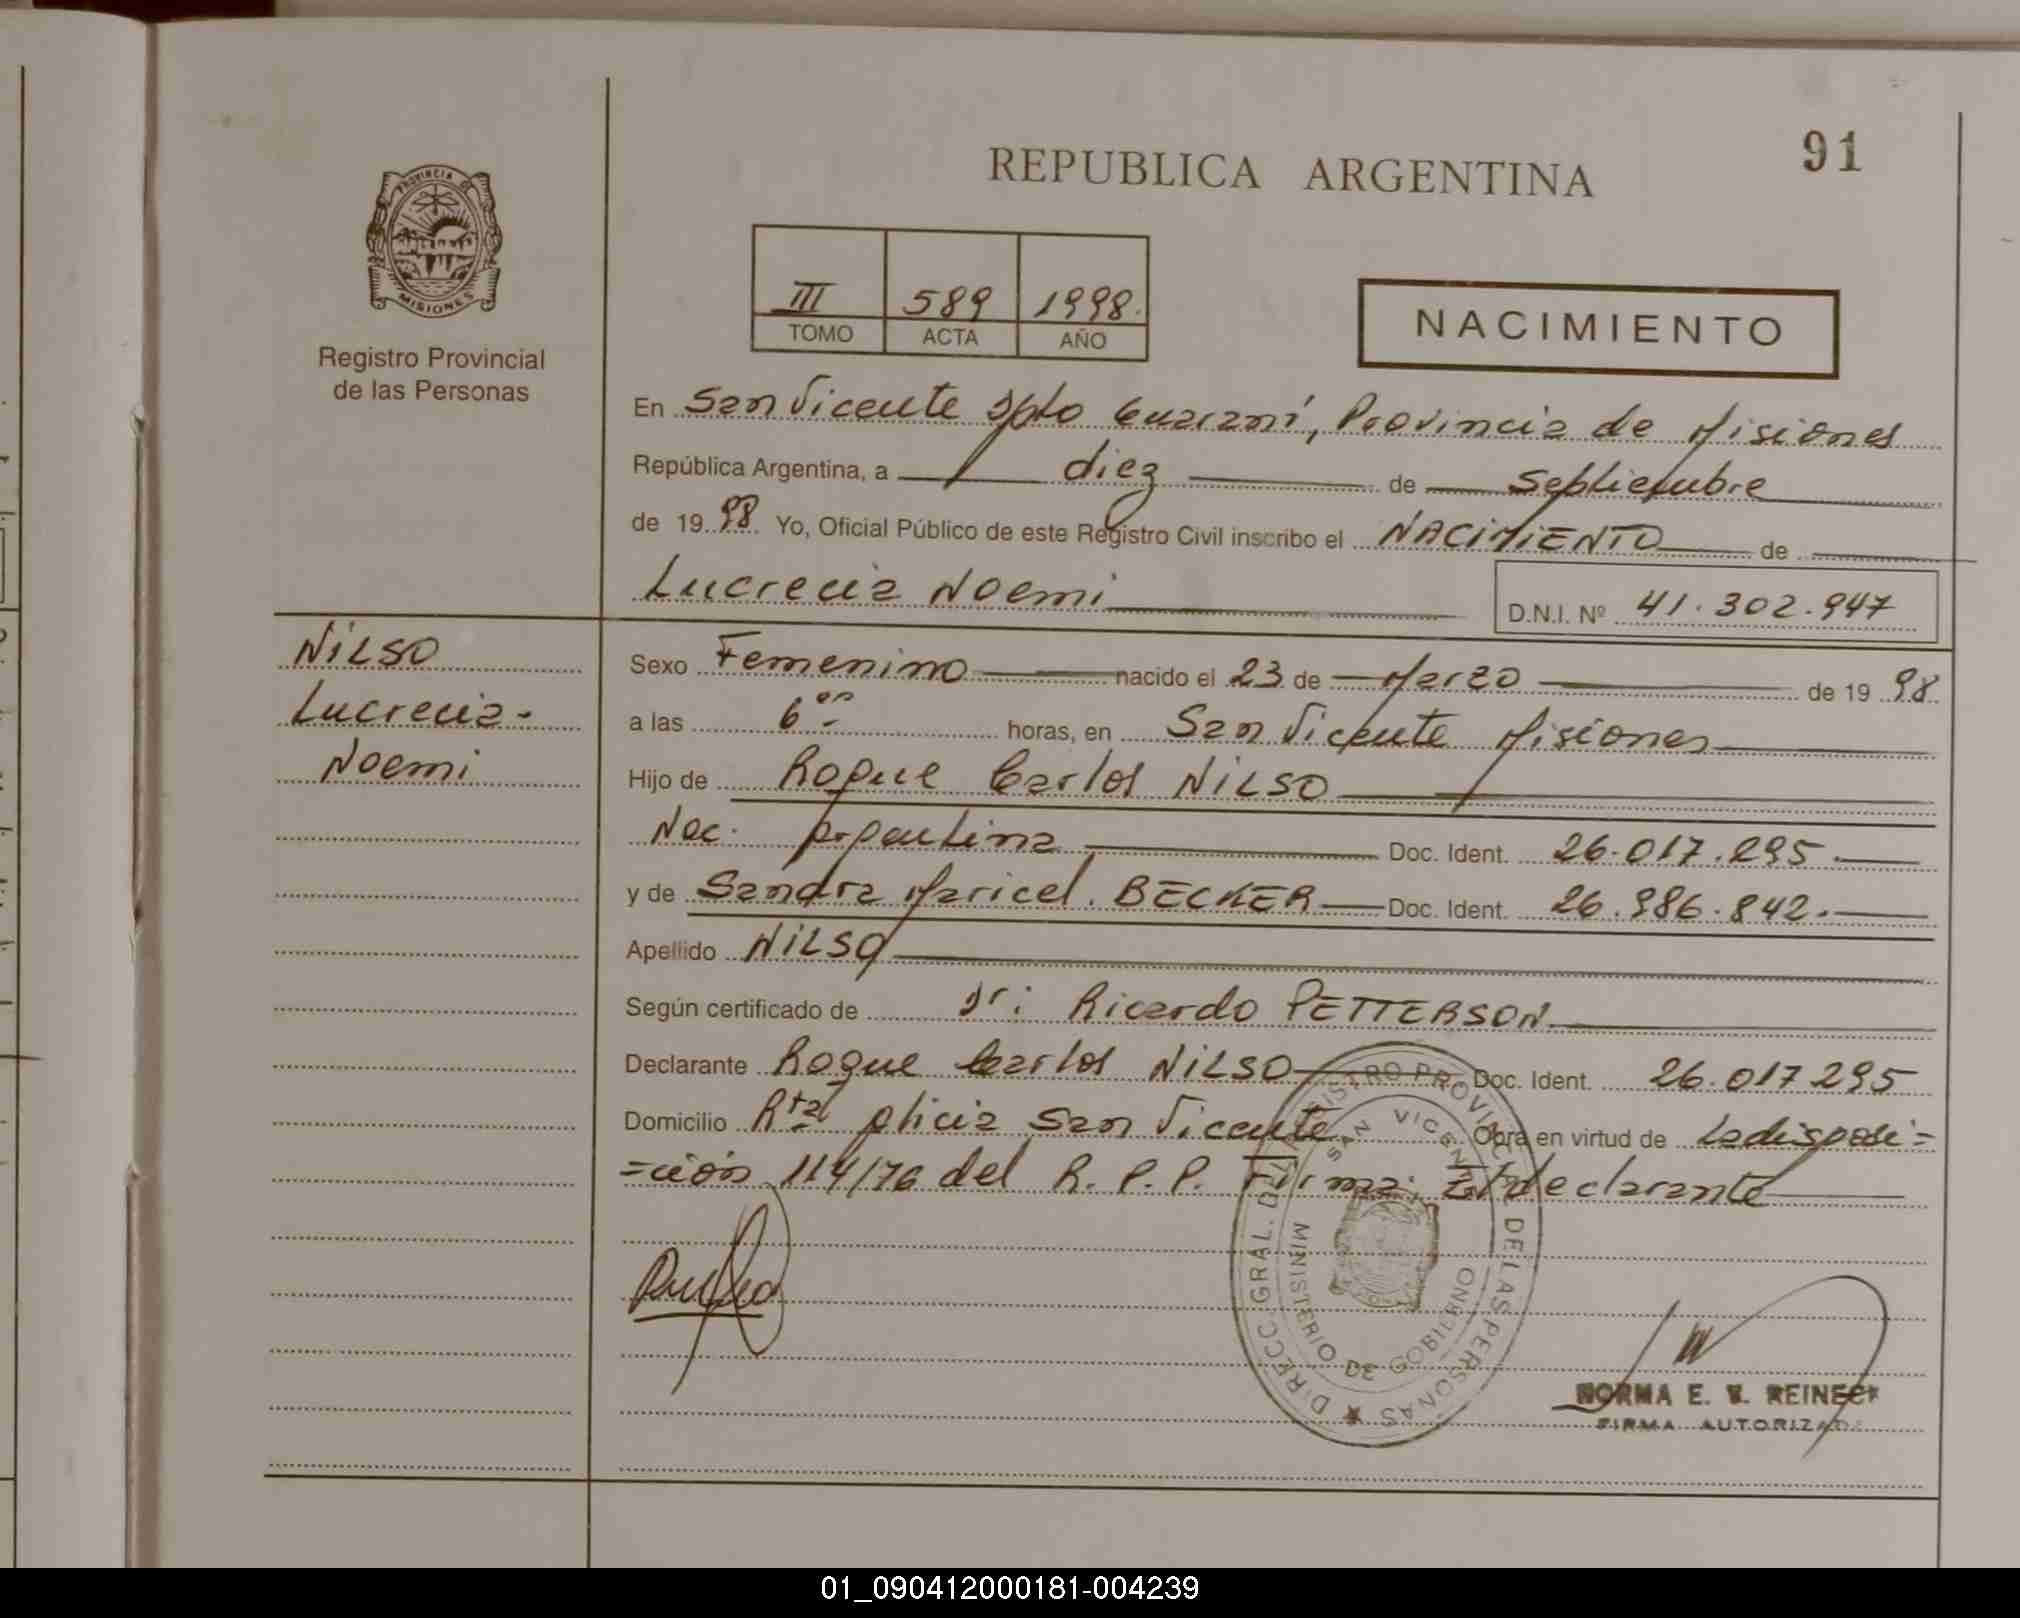 91
REPUBLICA ARGENTINA
PROVINCIA DE
MISIONES
Registro Provincial
de las Personas
III 589 1998.
TOMO ACTA AÑO
NACIMIENTO
En San Vicente Dpto Guaraní, Provincia de Misiones
República Argentina, a diez de Septiembre
de 1998 Yo, Oficial Público de este Registro Civil inscribo el NACIMIENTO de
Lucrecia Noemi D.N.I. Nº 41.302.947
NILSO
Lucrecia-
Noemi
Sexo Femenino nacido el 23 de Marzo de 1998
a las 6 horas, en San Vicente Misiones
Hijo de Roque Carlos NILSO
Nac. Argentina Doc. Ident. 26.017.295.
y de Sandra Maricel. BECKER Doc. Ident. 26.986.842.
Apellido NILSO
Según certificado de Dr: Ricardo PETTERSON
Declarante Roque Carlos NILSO Doc. Ident. 26.017295
Domicilio Rta Alicia San Vicente Obra en virtud de La disposi=
=ción 114/76 del R. P. P. Firma: El declarante
DIRECC. GRAL. DEL REGISTRO PROVINC. DE LAS PERSONAS
SAN VICENTE
MINISTERIO DE GOBIERNO
NORMA E. V. REINECK
FIRMA AUTORIZADA
01_090412000181-004239